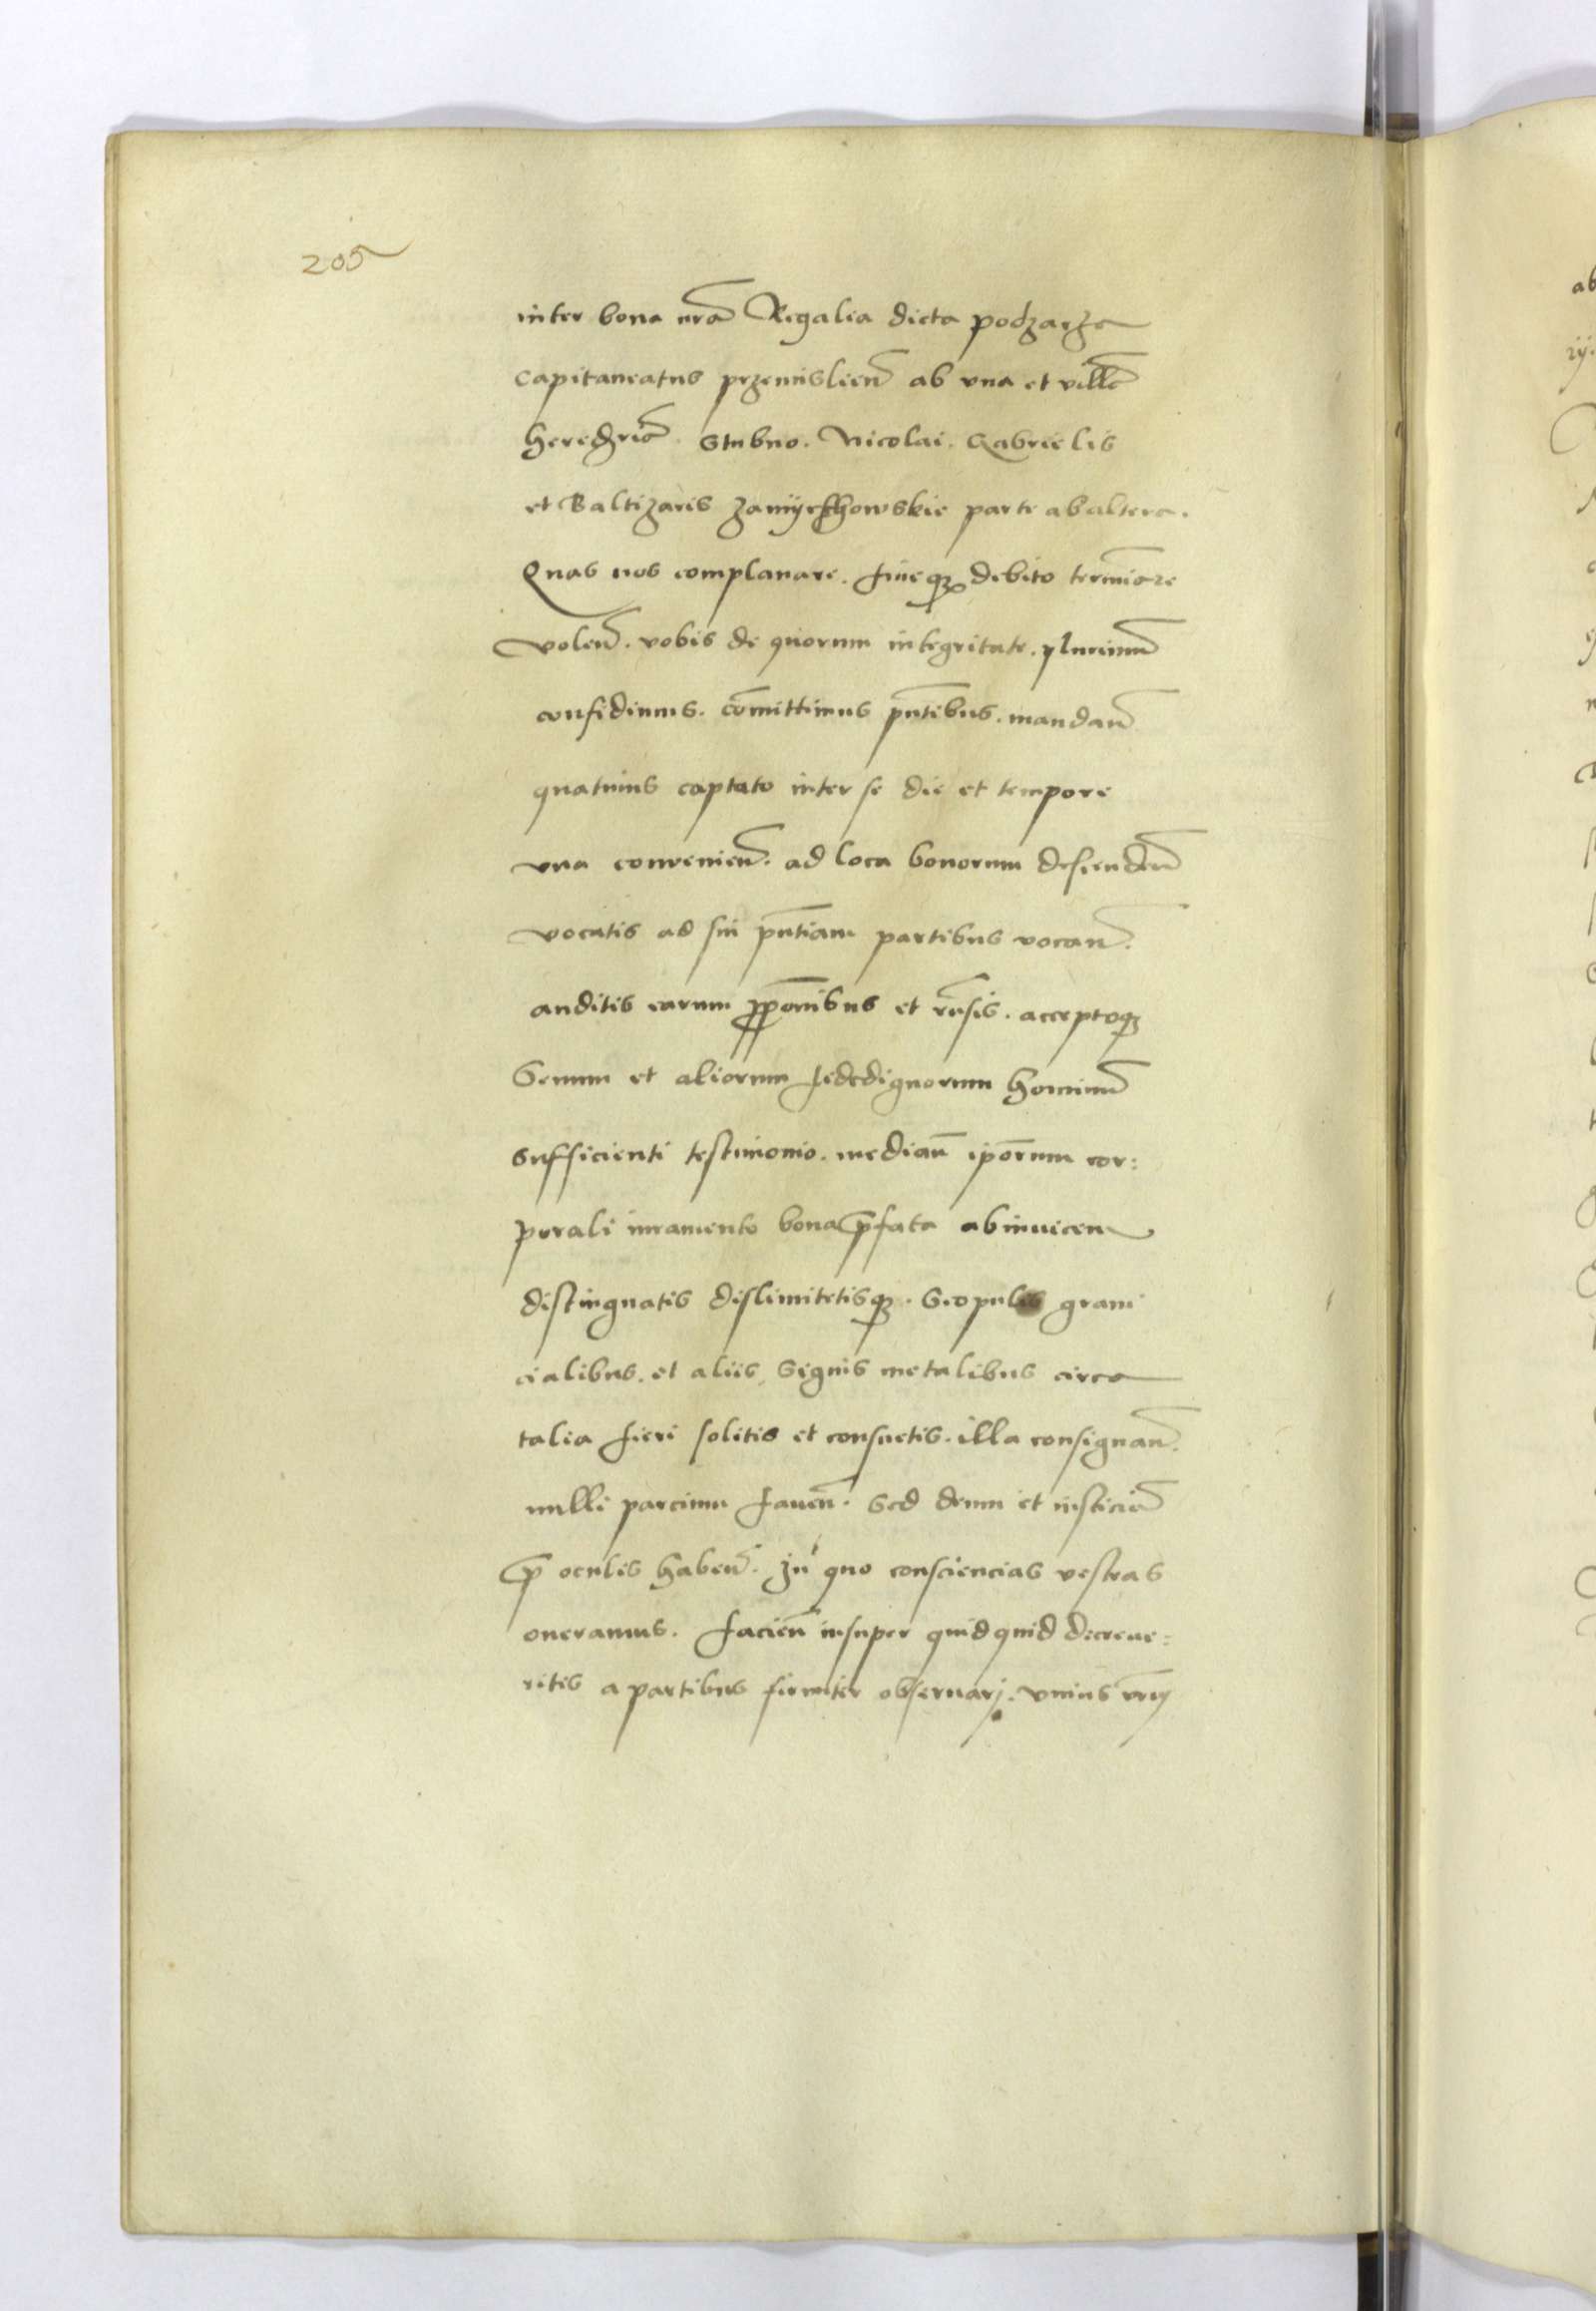 205
inter bona nrã Regalia dicta podzarze
capitaneatus przemislieñ ab vna et villã
heredriã Stubno. Nicolai. Gabrielis
et Baltizaris parte ab altera.
Quas nos complanare. fineqꝫ debito termiare
voleñ. vobis de quorum integritate. plurimũ
confidimus. cõmittimus pñtibus. mandañ
quatinus captato inter se die et tempore
vna convenieñ. ad loca bonorum descendeñ
vocatis ad sui pñtiam partibus vocañ.
auditis earum et rñsis. acceptoqꝫ
Senum et aliorum fidedignorum hominũ
sufficienti testimonio. mediañ ipõrum cor:
porali iuramento bona p̃fata abinuicem
distinguatis dislimitetisqꝫ. Scopulis grani
cialibus. et aliis signis metalibus circa
talia fieri solitis et consuetis. illa consignañ.
nulli parcium faueñ. Sed deum et iusticiã
p̃ oculis habeñ. In quo consciencias vestras
oneramus. facieñ insuper quidquid decreue:
ritis a partibus firmiter obseruarj. vnius vrũ